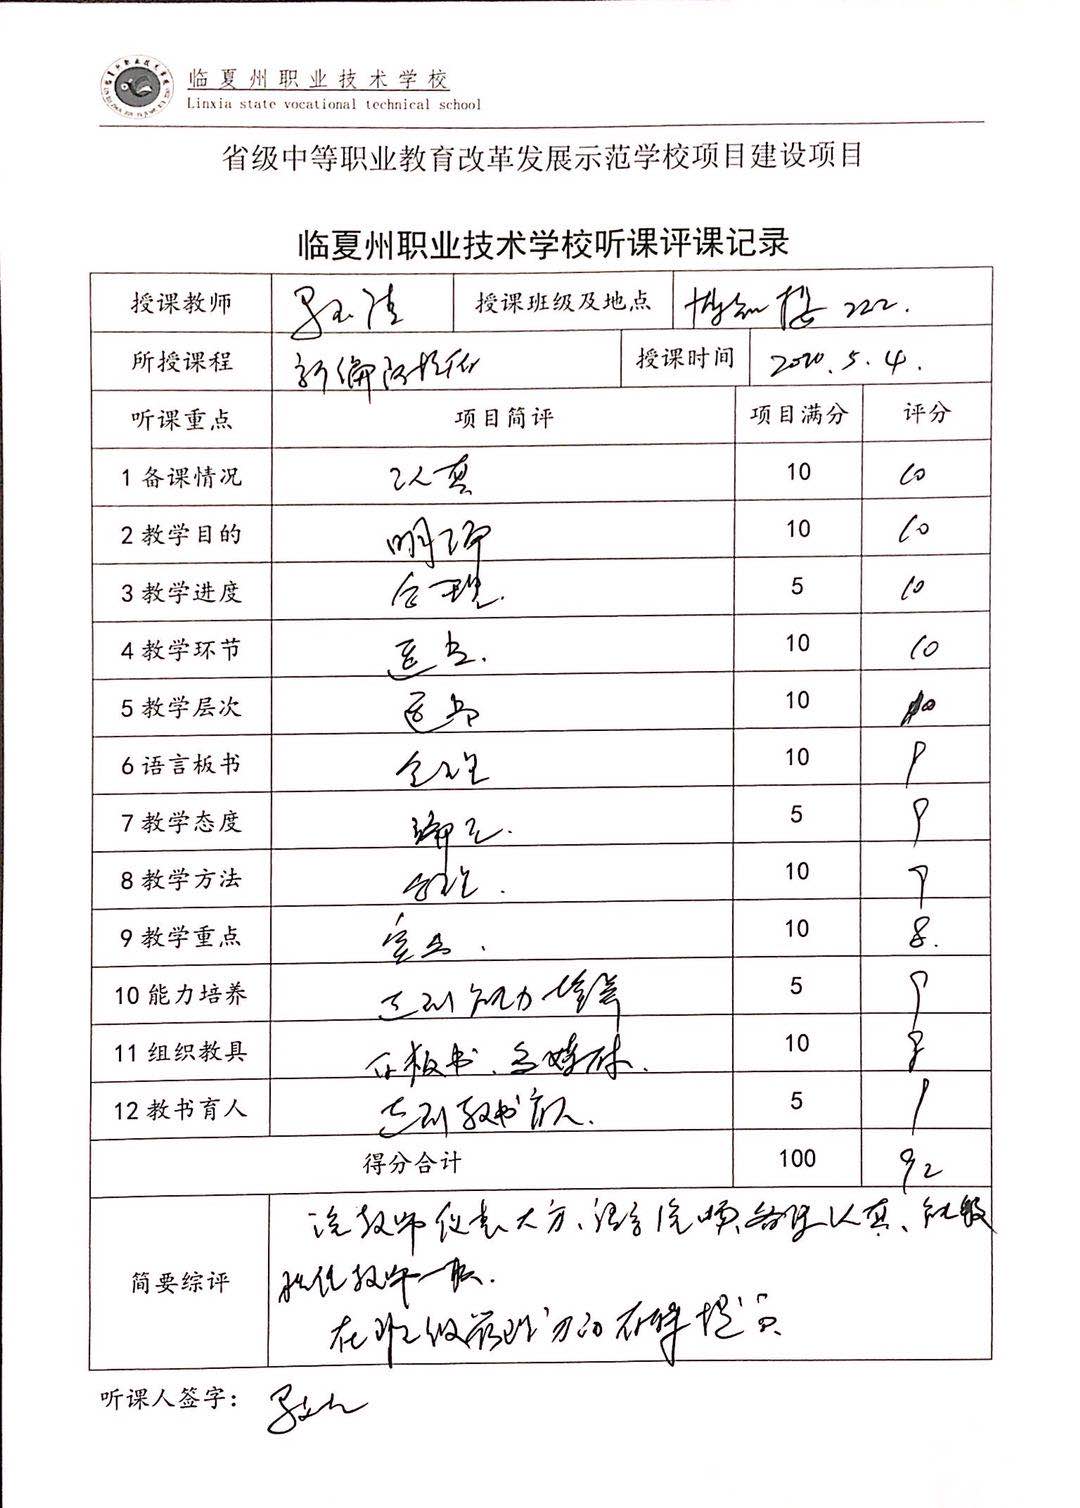 临夏州职业技术学校
Linxia state vocational technical school
省级中等职业教育改革发展示范学校项目建设项目
临夏州职业技术学校听课评课记录
授课教师 授课班级及地点 博知楼222.
所授课程 授课时间 2020.5.4.
听课重点 项目简评 项目满分 评分
1备课情况 认真 10 10
2教学目的 明确 10 10
3教学进度 合理. 5 10
4教学环节 适当. 10 10
5教学层次 适当 10
6语言板书 合理 10 9
7教学态度 端正. 5 9
8教学方法 合理. 10 9
9教学重点 突出. 10 8.
10能力培养 达到能力培养 5 9
11组织教具 有板书、多媒体. 10 8
12教书育人 达到教书育人. 5
得分合计 100 92
简要综评 该教师仪表大方、语言流顺、备课认真、能够
胜任教师一职.
在班级管理方面有待提高
听课人签字：